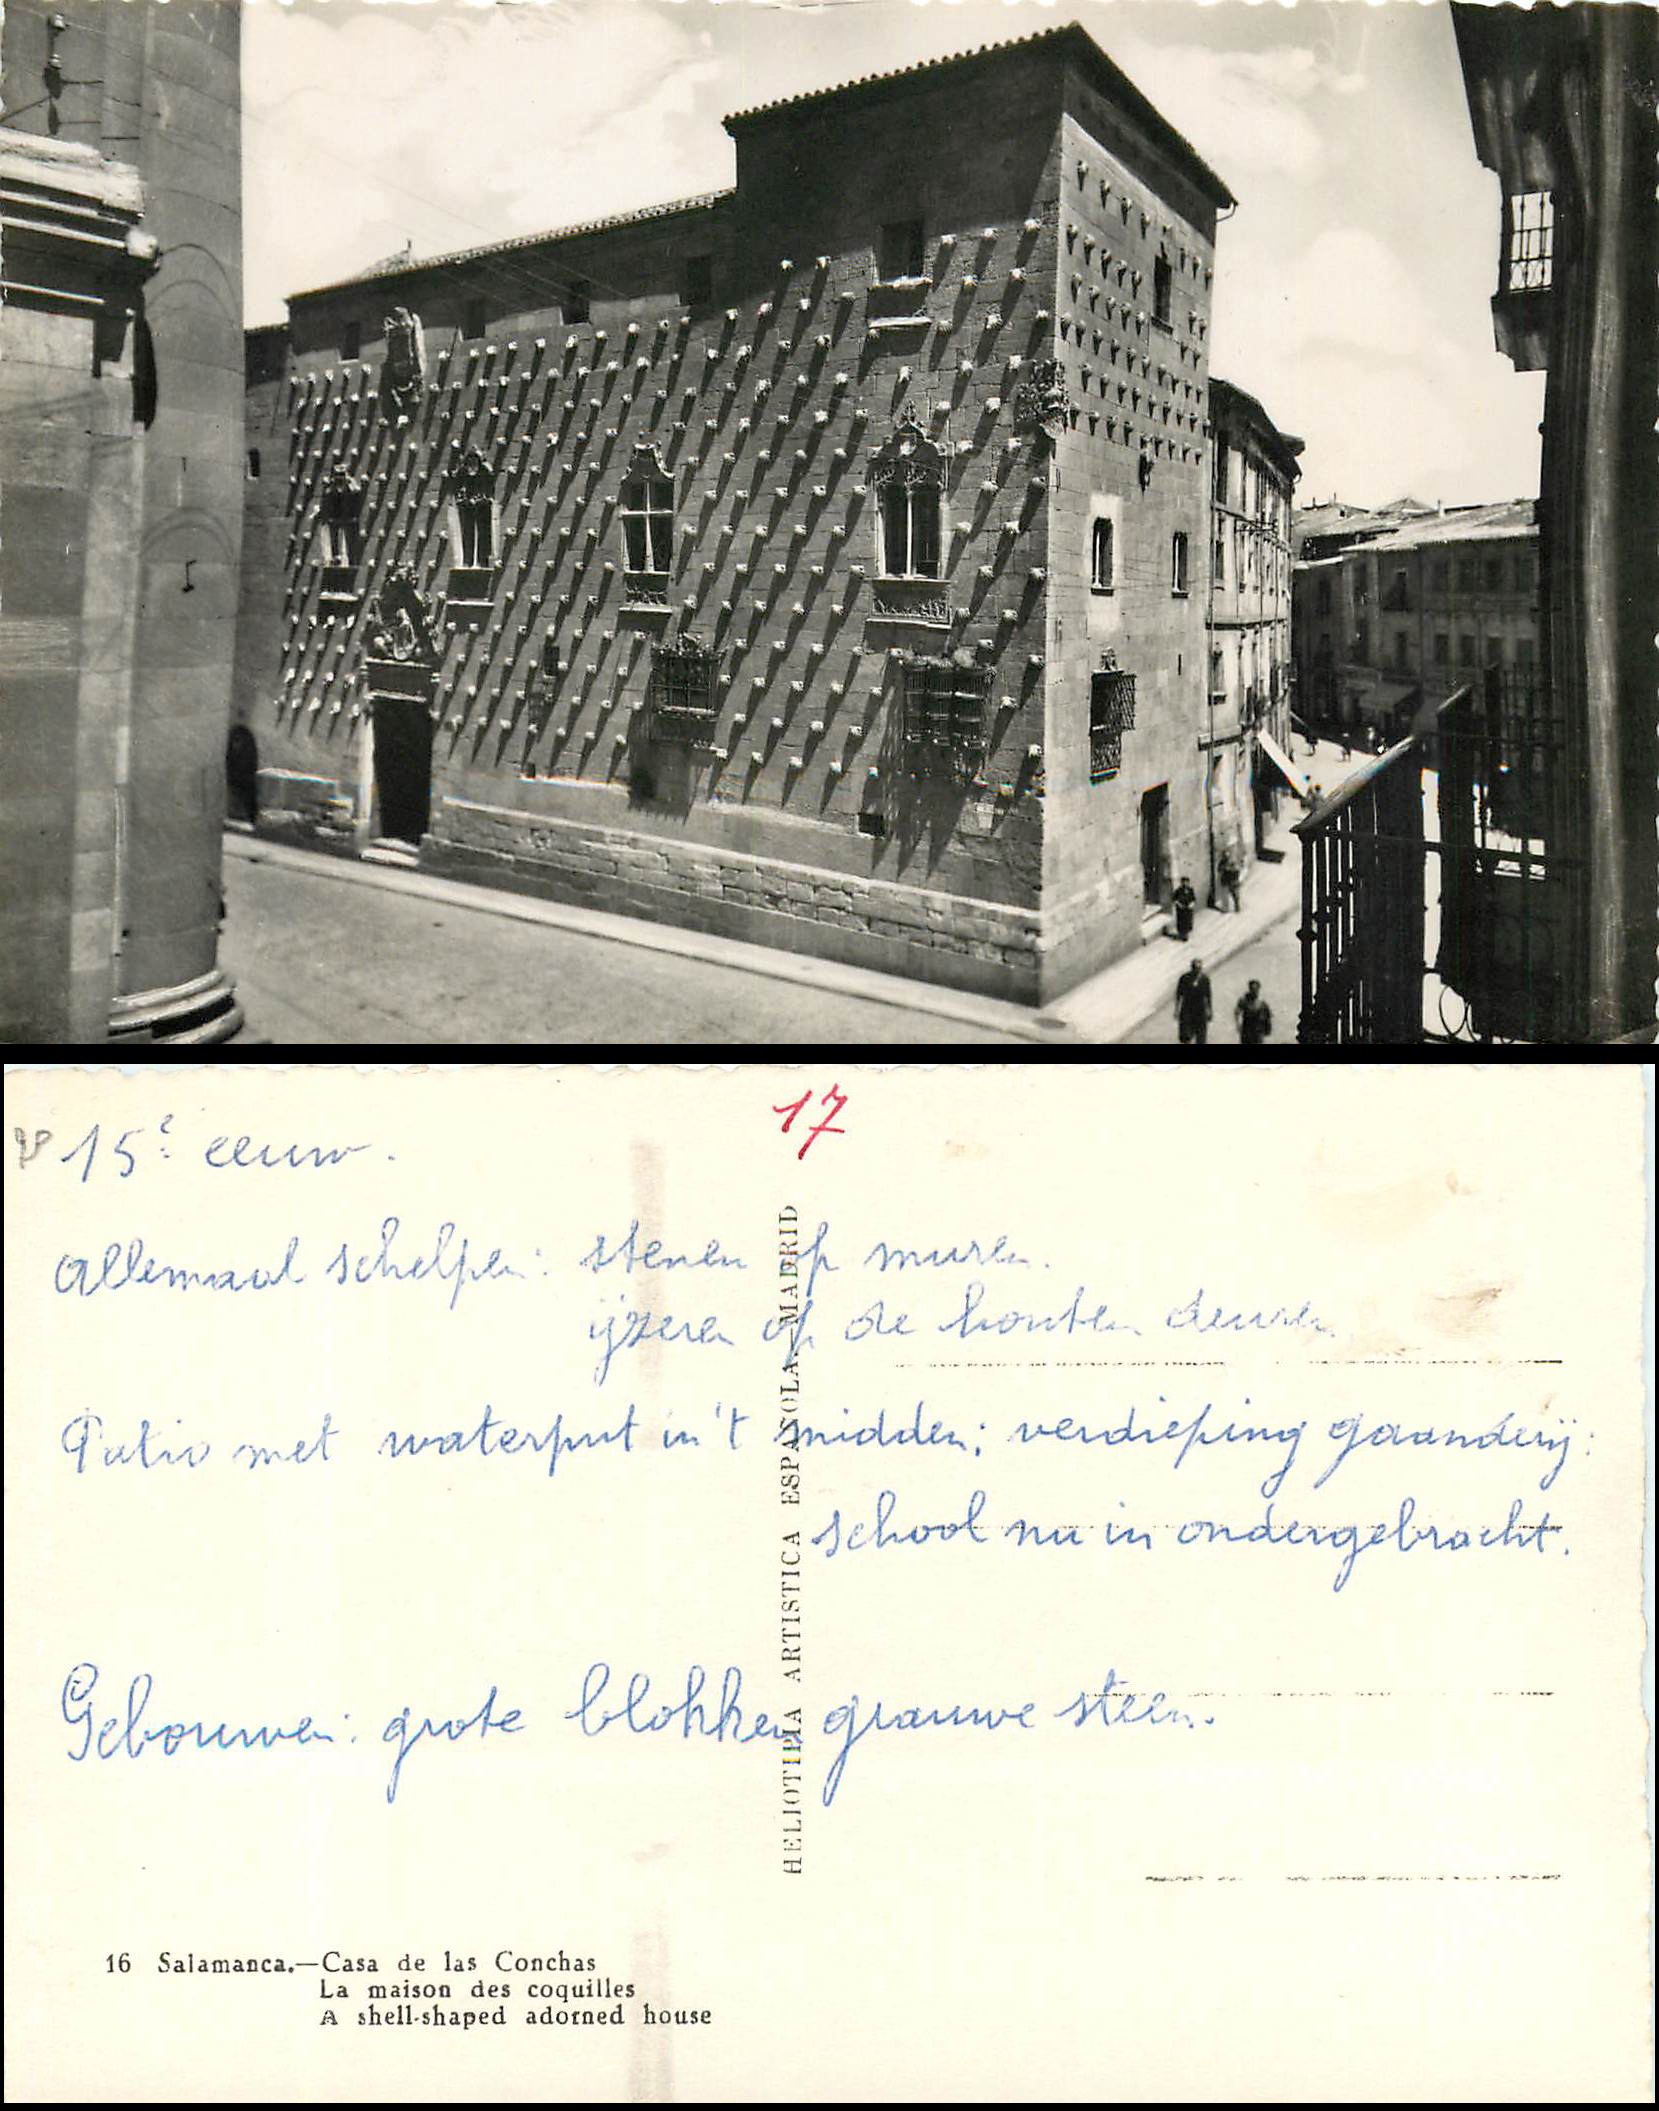 17
15e eeuw.
Allemaal schelpen: stenen op muren.
ijzeren op de houten deuren
Patio met waterput in 't midden; verdieping gaanderij:
school nu in ondergebracht.
Gebouwen: grote blokken grauwe steen.
HELIOTIPIA ARTISTICA ESPAÑOLA.—MADRID
16 Salamanca.—Casa de las Conchas
La maison des coquilles
A shell-shaped adorned house